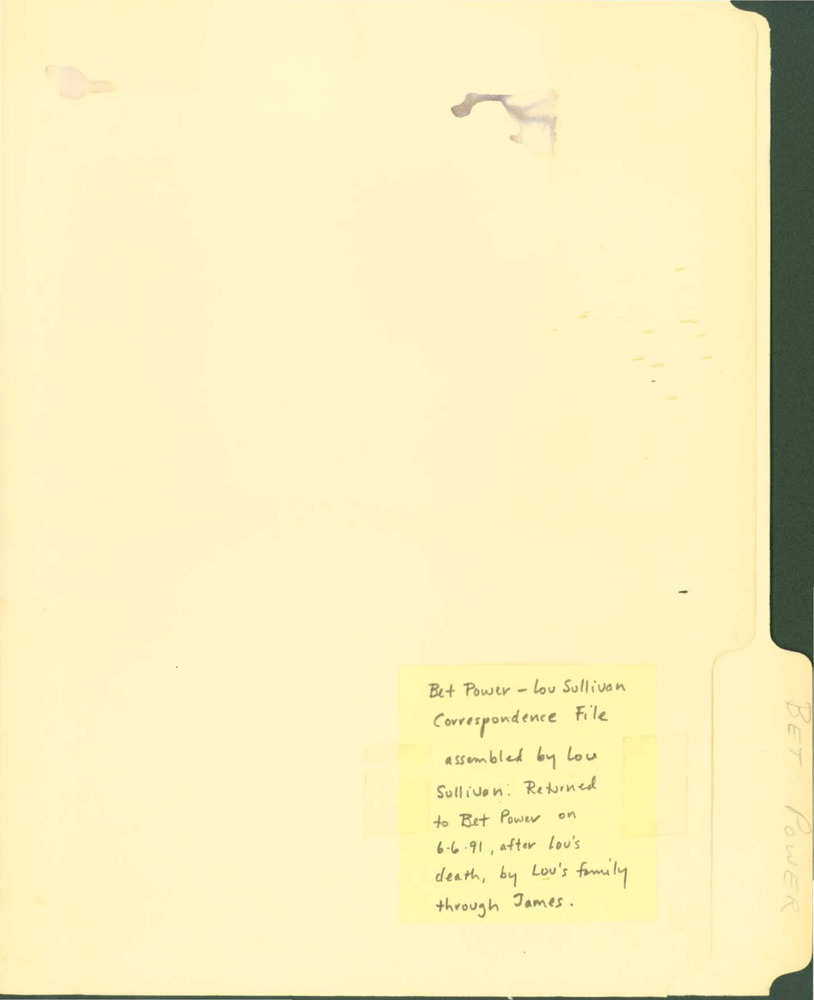 Bet Power – Lou Sullivan
Correspondence File
assembled by Lou
Sullivan. Returned
to Bet Power on
6-6-91, after Lou's
death, by Lou's family
through James.
BET POWER